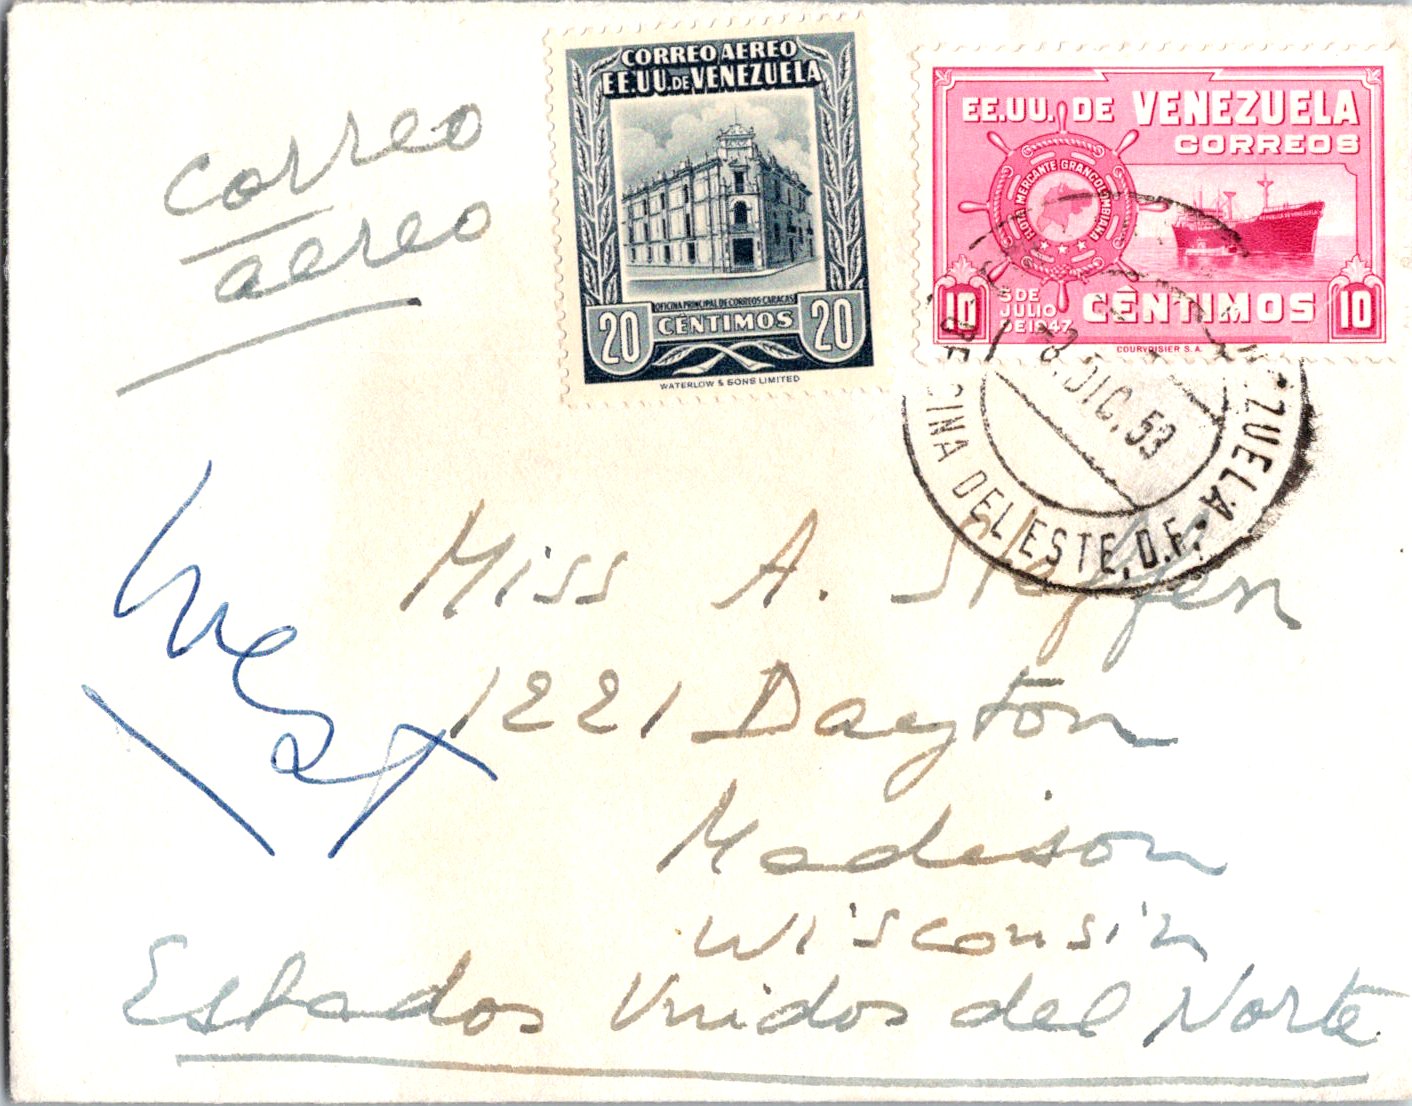 correo
aereo
CORREO AEREO
EE.UU. DE VENEZUELA
OFICINA PRINCIPAL DE CORREOS CARACAS
20 CENTIMOS 20
WATERLOW & SONS LIMITED
EE.UU. DE VENEZUELA
CORREOS
FLOTA MERCANTE GRANCOLOMBIANA
REPUBLICA DE VENEZUELA
10 5 DE JULIO DE 1947 CÉNTIMOS 10
COURVOISIER S.A.
DIC. 53
OFICINA DEL ESTE, D.F. VENEZUELA
Miss A. Steffen
1221 Dayton
Madison
Wisconsin
Estados Unidos del Norte